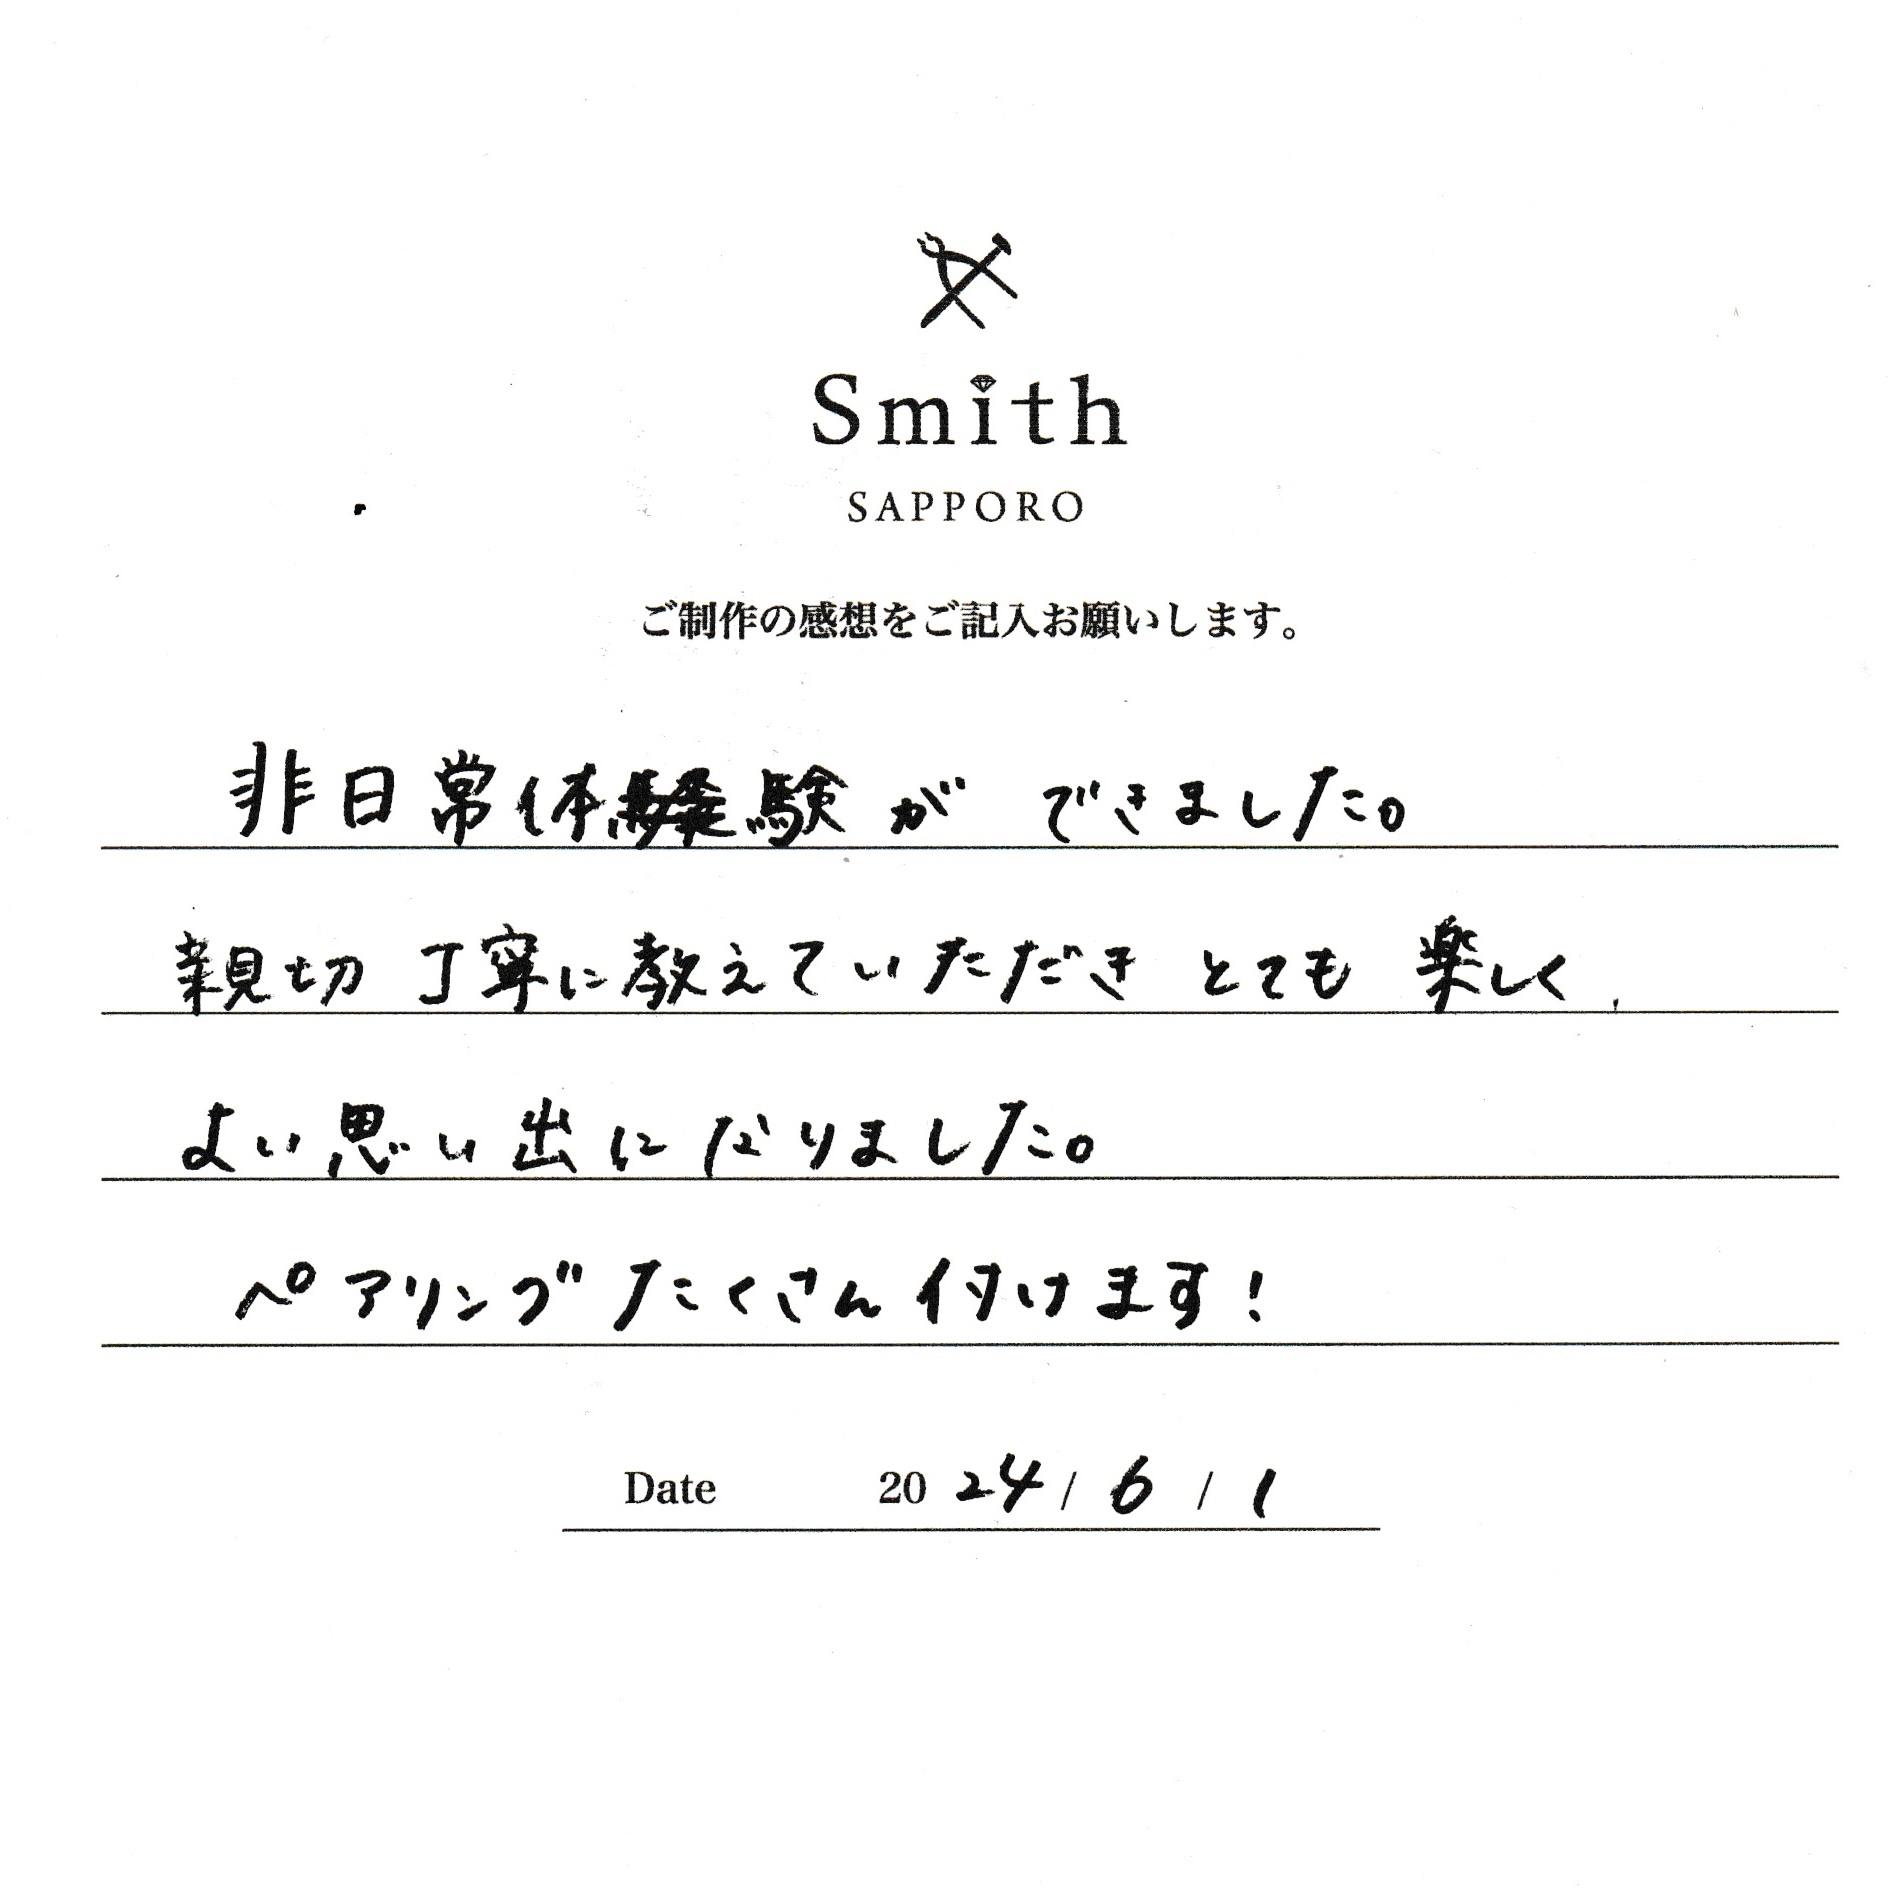 Smith
SAPPORO
ご制作の感想をご記入お願いします。
非日常体験ができました。
親切丁寧に教えていただきとても楽しく
よい思い出になりました。
ペアリングたくさん付けます!
Date 2024/6/1